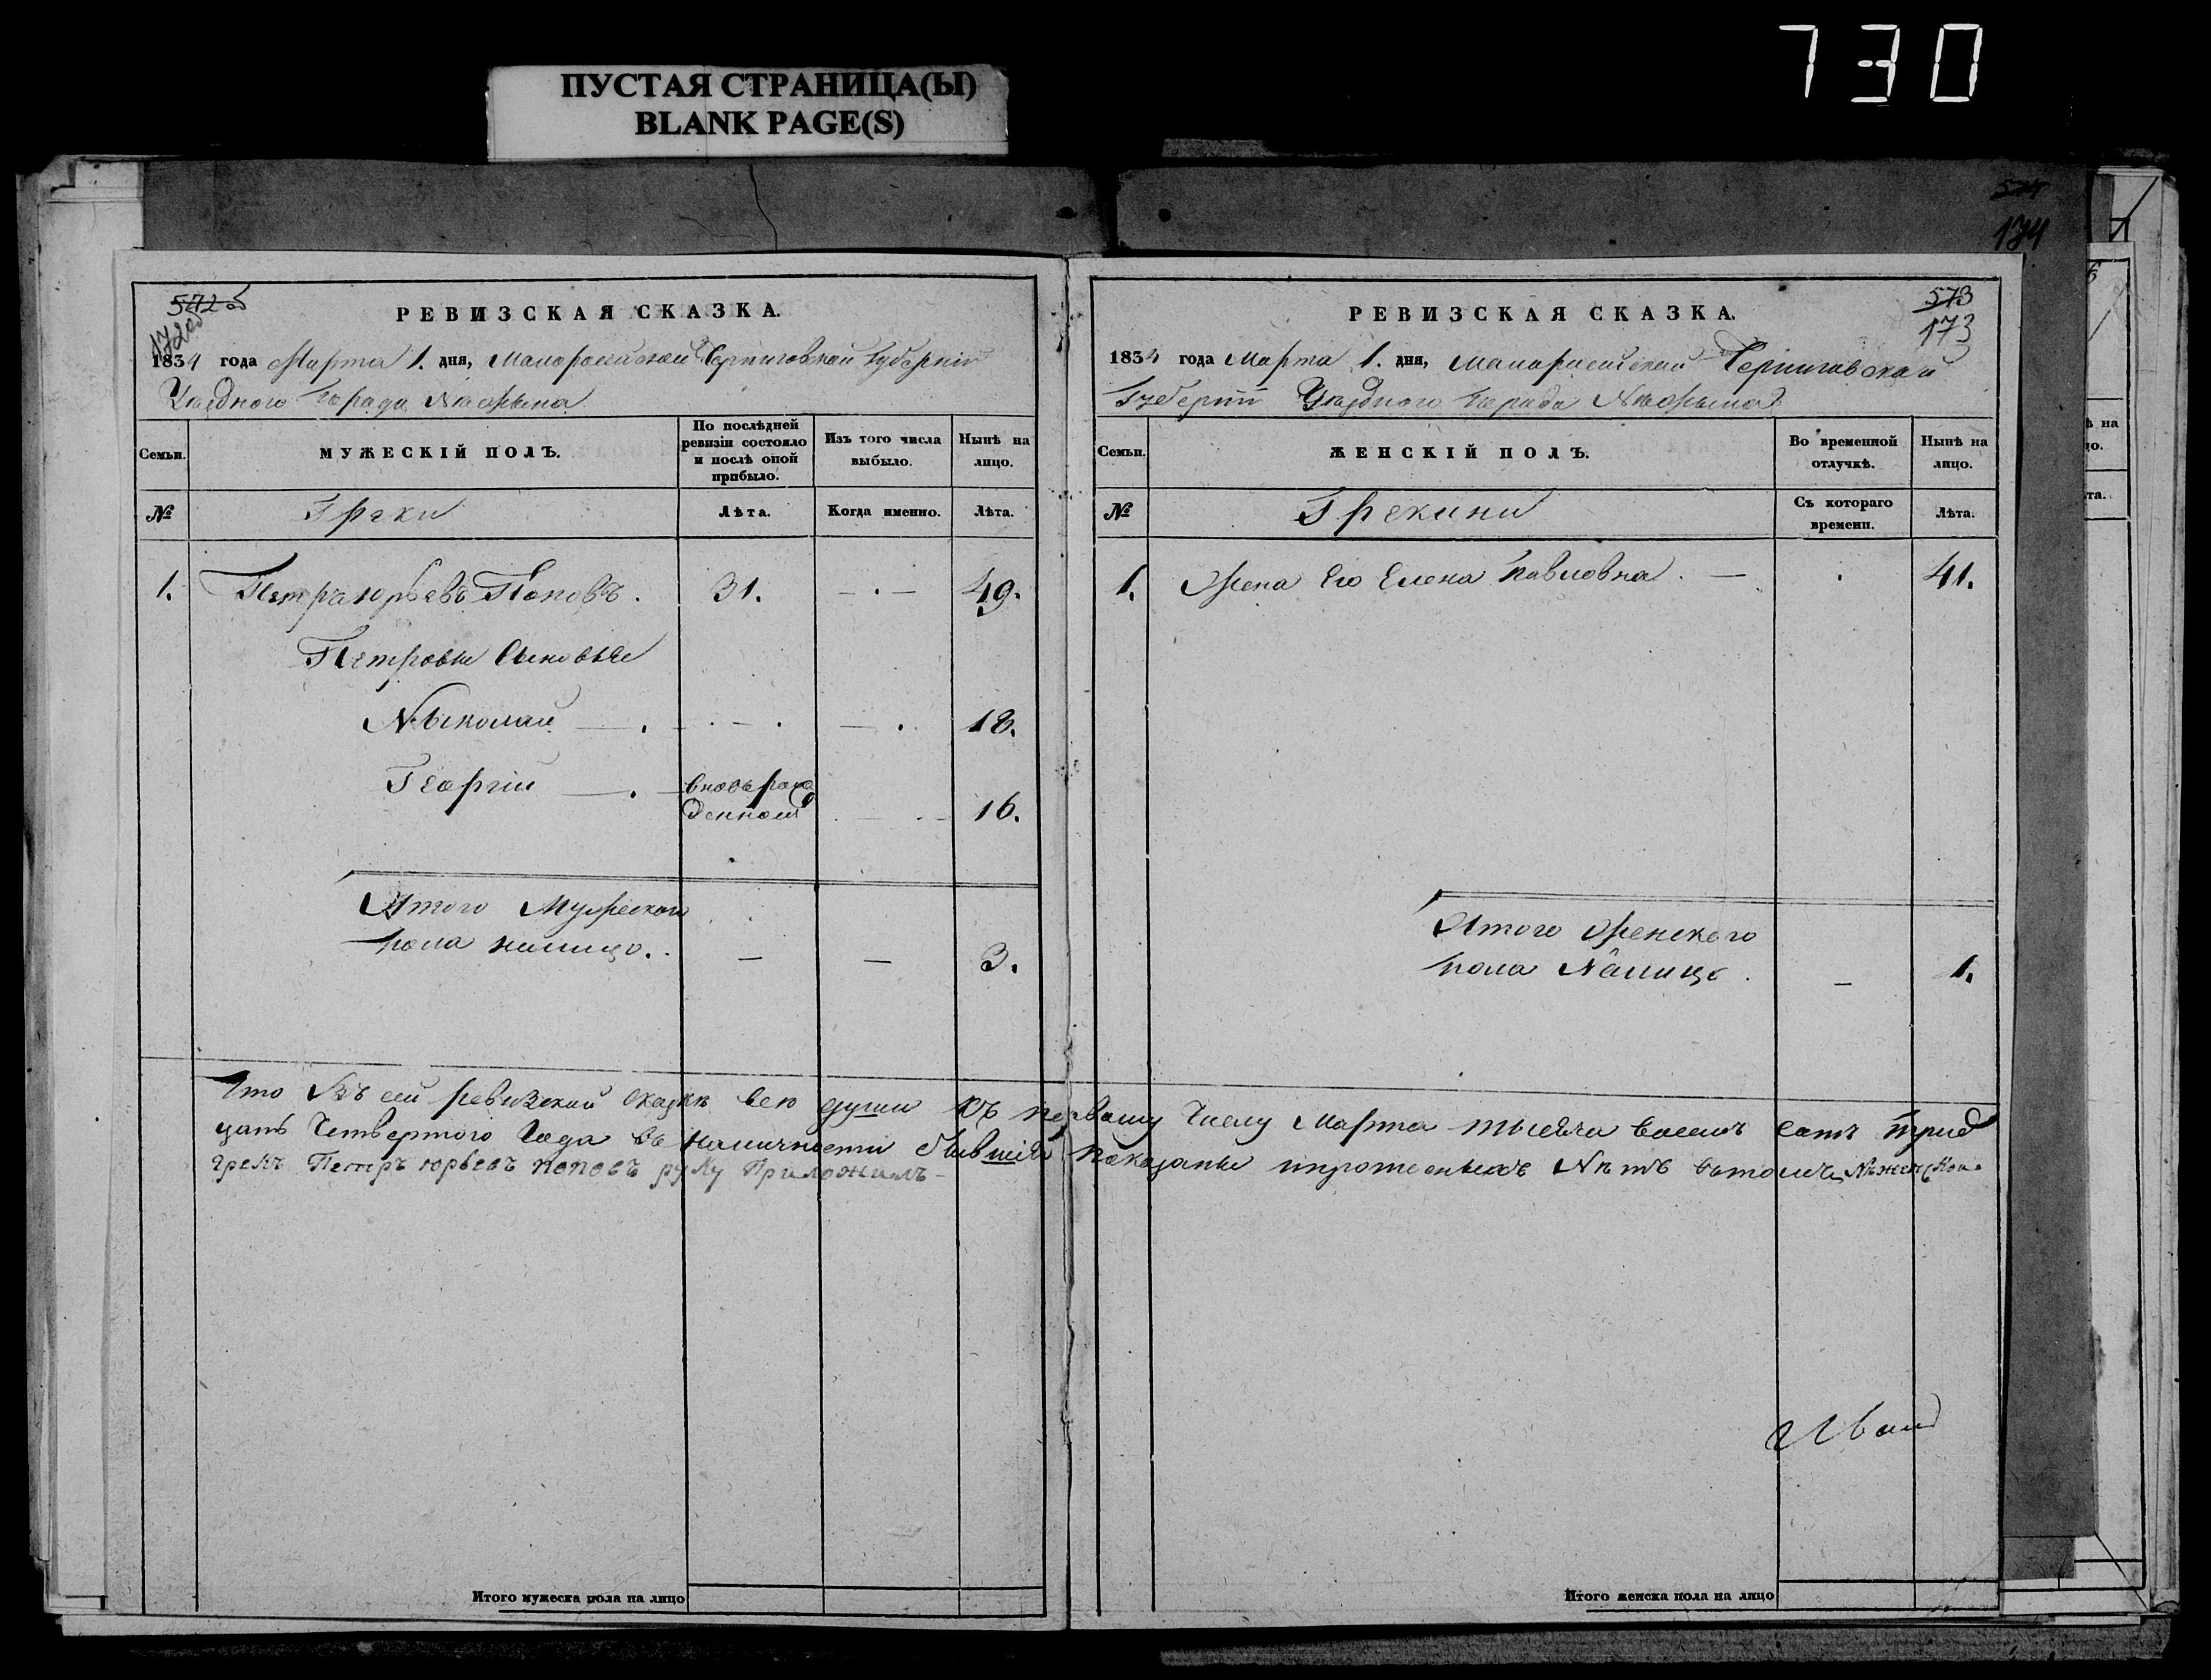 730
ПУСТАЯ СТРАНИЦА(Ы)
BLANK PAGE(S)
574
174
572 об
172 об
РЕВИЗСКАЯ СКАЗКА.
1834 года Марта 1. дня, Малороссийской Черниговской Губернiи
Уезднаго Города Нѣжына
Семьи.
МУЖЕСКІЙ ПОЛЪ.
По послѣдней ревизіи состояло и послѣ оной прибыло.
Изъ того числа выбыло.
Нынѣ на лицо.
№
Греки
Лѣта.
Когда именно.
Лѣта.
1. Петръ Юрьевъ Поповъ. 31. — . — 49.
Петровы Сыновья
Николай — . . — . — . 18.
Георгій — . вновь рож
денной . — . — 16.
Итого Мужеского
пола налицо. . — — 3.
573
173
РЕВИЗСКАЯ СКАЗКА.
1834 года Марта 1. дня, Малоросийской Черниговской
Губернiи Уездного Города Нѣжына
Семьи.
ЖЕНСКІЙ ПОЛЪ.
Во временной отлучкѣ.
Нынѣ на лицо.
№
Грекини
Съ котораго времени.
Лѣта.
1. Жена Его Елена Павловна. — . 41.
Итого Женского
пола Налицо . — 1.
Что Въ сей ревизской сказкѣ все души къ первому Числу Марта тысяча восемъ сотъ трид
цать Четвертого Года въ наличности бывшiя показаны и прописныхъ Нѣтъ вътомъ Нѣженской
грекъ Петръ юрьевъ поповъ руку Приложилъ -
Иван
Итого мужеска пола на лицо
Итого женска пола на лицо